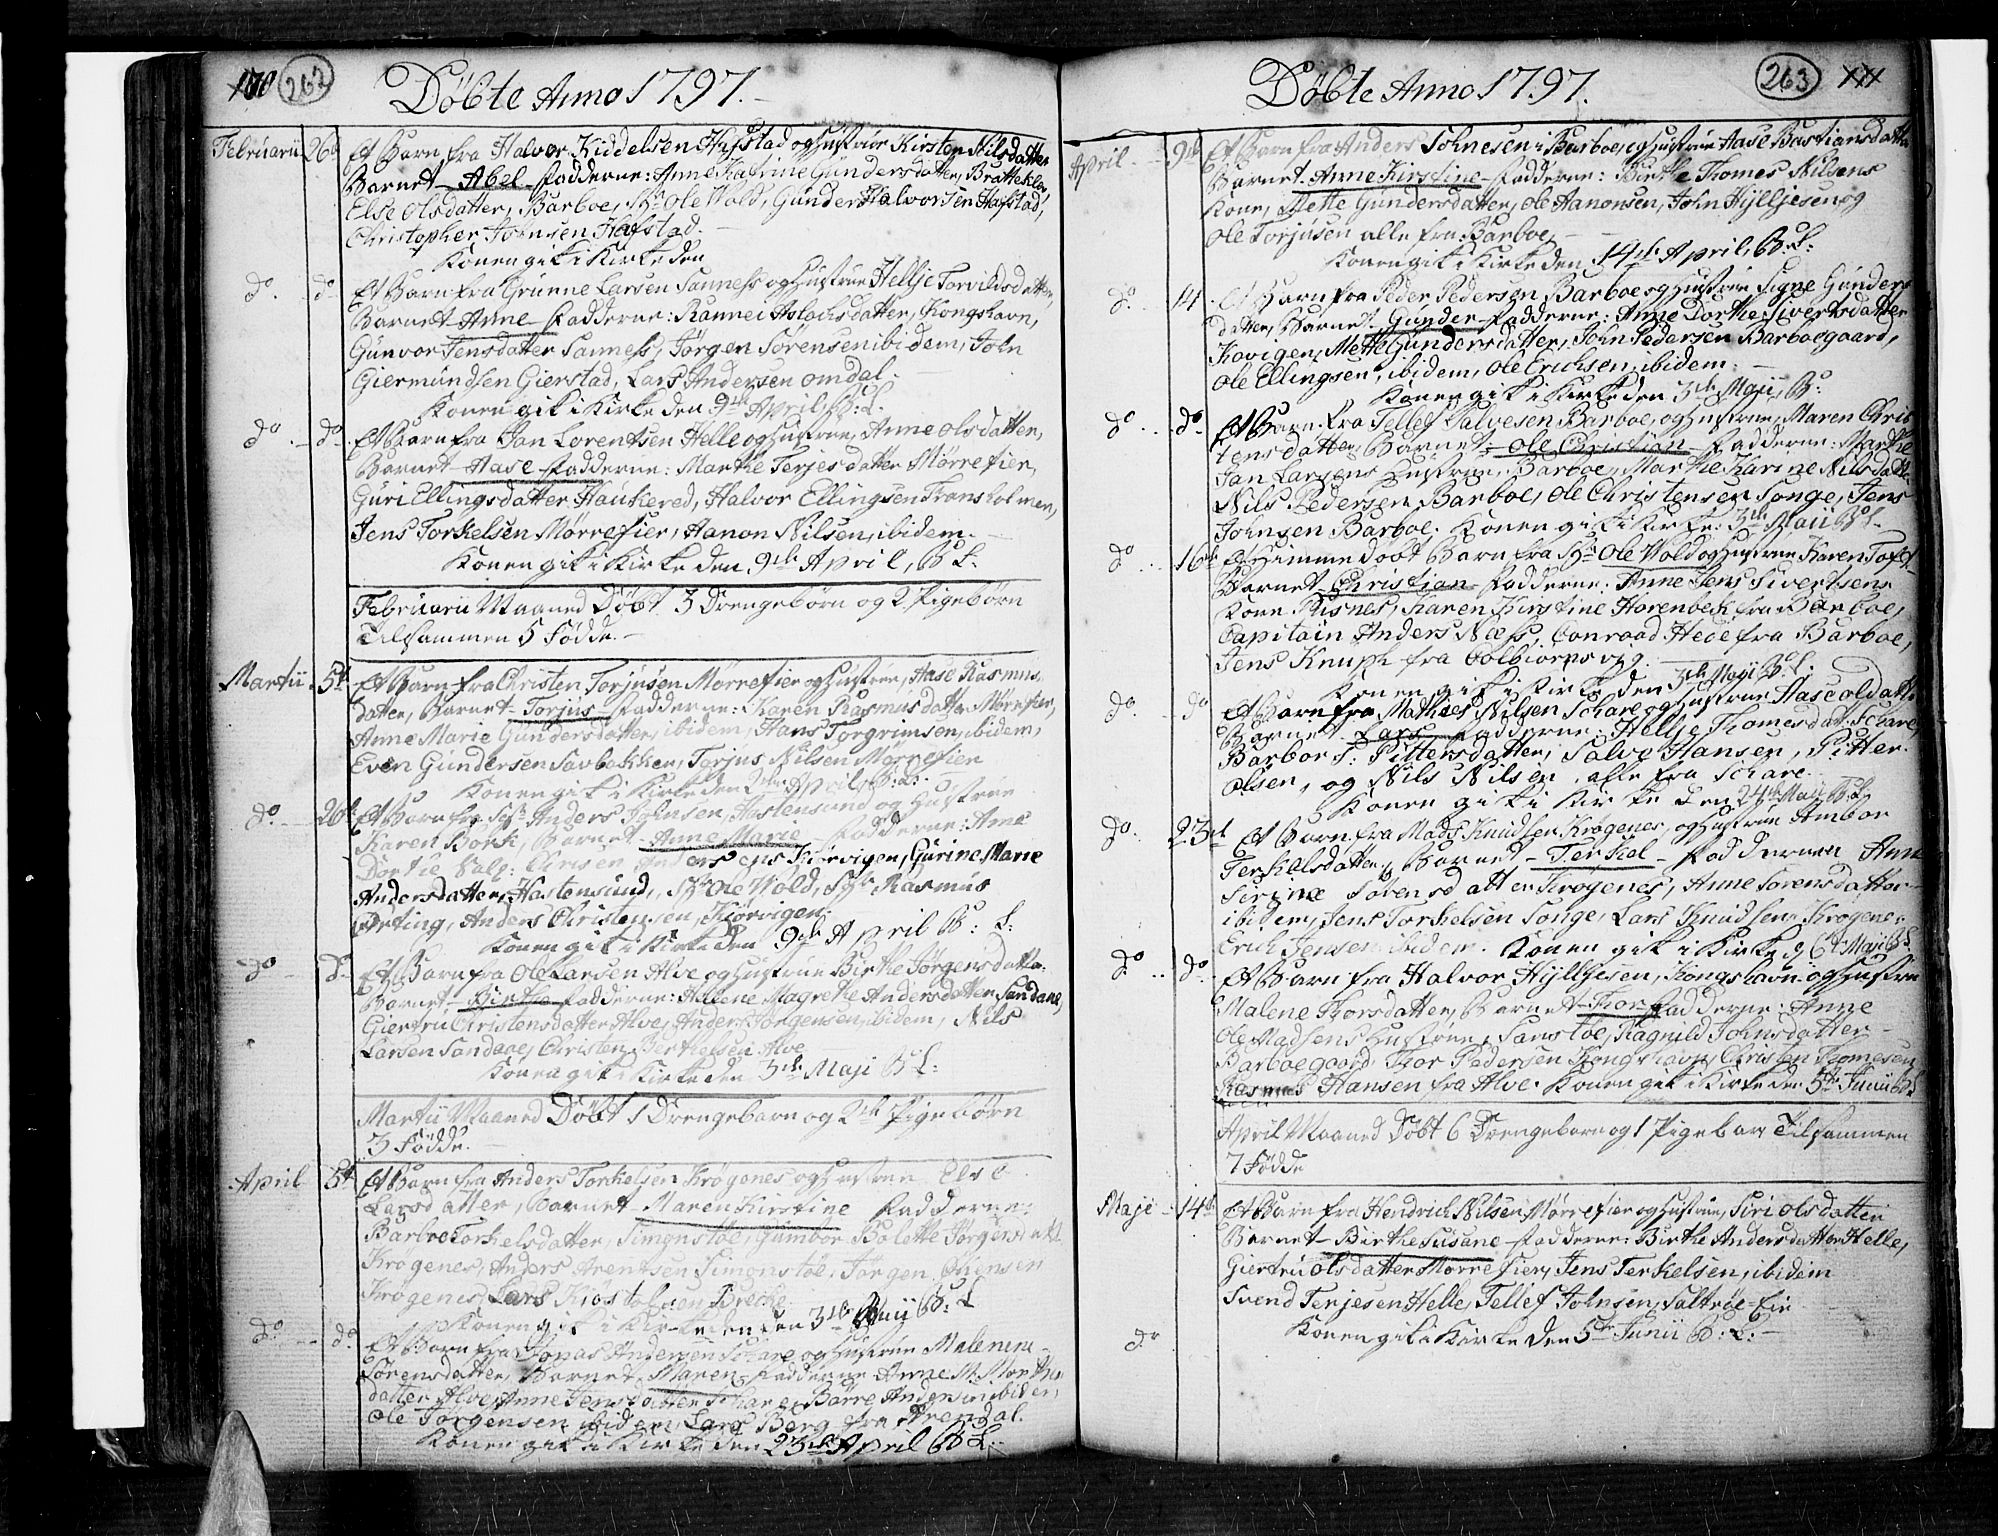 110 262
Döbte Anno 1797.
Februarii 26de Et Barn fra Halvor Kiddelsen Hafstad og Hustrue Kirsten Nilsdatter
Barnet Abel Fadderne: Anne Katrine Gundersdatter, Bratteklev,
Else Olsdatter, Barboe, Sr Ole Wold, Gunder Halvorsen Hafstad,
Christopher Johnsen Hafstad.
Konen gik i Kirke den
do. do Et Barn fra Grunne Larsen Sanness og Hustrue Hellje Torvildsdatter,
Barnet Anne Fadderne: Rannei Aslachsdatter, Kongshavn,
Gunvor Jensdatter Sanness, Jörgen Sörensen ibidem, John
Giermundsen Gierstad, Lars Andersen omdal.
Konen gik i Kirke den 9de April, B: L.
do. do Et Barn fra Jan Lorentsen Helle og Hustrue, Anne Olsdatter,
Barnet Aase Fadderne: Marthe Terjesdatter Mörrefier,
Guri Ellingsdatter Haukered, Halvor Ellingsen Transholmen,
Jens Torkelsen Mörrefier, Aanon Nilsen, ibidem.
Konen gik i Kirke den 9de April, B L.
Februarii Maaned Döbt 3 Drengebörn og 2 Pigebörn
Tilsammen 5 Födde.
Martii 5te Et Barn fra Christen Torjusen Mörrefier og Hustrue, Aase Rasmus-
datter, Barnet Torjus Fadderne: Karen Rasmusdatter Mörrefier,
Anne Marie Gundersdatter, ibidem, Hans Torgrimsen, ibidem,
Even Gundersen Savbekken, Torjus Nilsen Mörrefier
Konen gik i Kirke den 2den April, B: L:
do. 26de Et Barn fra Anders Johnsen, Hastensund og Hustrue
Karen Bork, Barnet Anne Marie Fadderne: Anne
Dortie Christensens Kiörvigen, Gurine Marie
Andersdatter, Hastensund, Sr Ole Wold, Rasmus
Örting, Anders Christensen, Kjörvigen
Konen gik i Kirke den 9de April B: L:
do do Et Barn fra Ole Larsen Alve og Hustrue Birthe Jörgensdatter
Barnet Birthe Fadderne: Helene Magrethe Andersdatter Sandane,
Giertru Christensdatter Alve, Anders Jörgensen, ibidem, Nils
Larsen Sandane, Christen Berthelsen Alve
Konen gik i Kirke den 3de Maji B: L:
Martii Maaned Döbt 1 Drengebarn og 2de Pigebörn
3 Födde.
April 5te Et Barn fra Anders Torkelsen Krögenes og Hustrue Else
Larsdatter, Barnet Maren Kirstine Fadderne:
Barbroe Torkelsdatter, Simonstöe, Gumbor Bolette Jörgensdatt.
Krögenes, Anders Arentsen Simonstöe, Jörgen Olensen
Krögenes, Lars Kiöstolsen Brecke
Konen gik i Kirken den 3de Maii B: L
do. do. Et Barn fra Jonas Andersen Schare og Hustrue Malene
Sörensdatter, Barnet Maren Fadderne Anne M. Morthens
datter Alve, Anne Jensdatter Schare, Börre Andersen ibidem,
Ole Jörgensen ibidem, Lars Berg fra Arendal.
Konen gik i Kirke den 23de April B: L.
263 111
Döbte Anno 1797.
April 9de Et Barn fra Anders Johnesen i Barboe, og Hustrue Aase Bastiansdatter
Barnet Anne Kirstine Fadderne: Birthe Thomes Nilsens
Kone, Mette Gundersdatter, Ole Aanonsen, John Hylljesen og
Ole Torjusen alle fra Barboe,
Konen gik i Kirke den 14de April, B: L:
do. 14. Et Barn fra Peder Pedersen Barboe og Hustrue Signe Gunders-
datter, Barnet Gunder Fadderne: Anne Dorthe Sivertsdatter
Kovigen, Mette Gundersdatter, John Pedersen Barboegaard,
Ole Ellingsen, ibidem, Ole Erichsen, ibidem.
Konen gik i Kirke den 3de Maji, B:
do. do. Et Barn fra Tellef Salvesen Barboe, og Hustrue, Maren Chris-
tensdatter, Barnet Ole Christian Fadderne: Marthe
Jan Larsens Hustrue, Barboe, Marthe Karine Nilsdatter
Nils Pedersen Barboe, Ole Christensen Songe, Jens
Johnsen Barboe. Konen gik i Kirke: 3de Maii B: L
do 16de Et Himmedöbt Barn fra Sr Ole Wold og Hustrue Karen Toft.
Barnet Christian Fadderne: Anne Jens Sivertsens
Kone Risnes, Karen Kirstine Horenbek fra Barboe,
Capitain Anders Ness, Conraad Hede fra Barboe,
Jens Knuph fra Colbiornsvig.
Konen gik i Kirke den 3de Maji B: L:
do. do Et Barn fra Mathies Nilsen Schare og Hustrue Aase Oldatter
Barnet Lars Fadderne: Hellje Thomesdat. Schare,
Barbor S: Pittersdatter, Salve Hansen, Pitter
Olsen, og Nils Nilsen, alle fra Schare.
Konen gik i Kirke den 24de Maji B: L.
do. 23de Et Barn fra Mads Knudsen Krögenes, og Hustrue Ambor
Terkelsdatter, Barnet Terkel Fadderne Anne
Serine Sörensdatter Krögenes, Anne Sörensdatter
ibidem, Jens Torkelsen Songe, Lars Knudsen Krögenes,
Erich Jensen ibidem. Konen gik i Kirke d 6te Maji B: L
do. do. Et Barn fra Halvor Hylljesen, Kongshavn og Hustrue
Malene Thorsdatter, Barnet Thor Fadderne: Anne
Ole Madsens Hustrue, Sanstöe, Ragnild Johnsdatter
Barboegaard, Thor Pedersen Kongshavn, Christen Thomesen
Rasmus Hansen fra Alve. Konen gik i Kirke den 5te Junii B: L
April Maaned Döbt 6 Drengebarn og 1 Pigebarn Tilsammen
7 Födde
Maje 14de Et Barn fra Hendrich Nilsen, Mörrefier og Hustrue, Siri Olsdatter
Barnet Birthe Susane Fadderne: Birthe Andersdatter Helle,
Giertru Olsdatter Mörrefier, Jens Terkelsen, ibidem
Svend Terjesen Helle, Tellef Johnsen, Saltröe-Eie
Konen gik i Kirke den 5te Junii B: L:
do